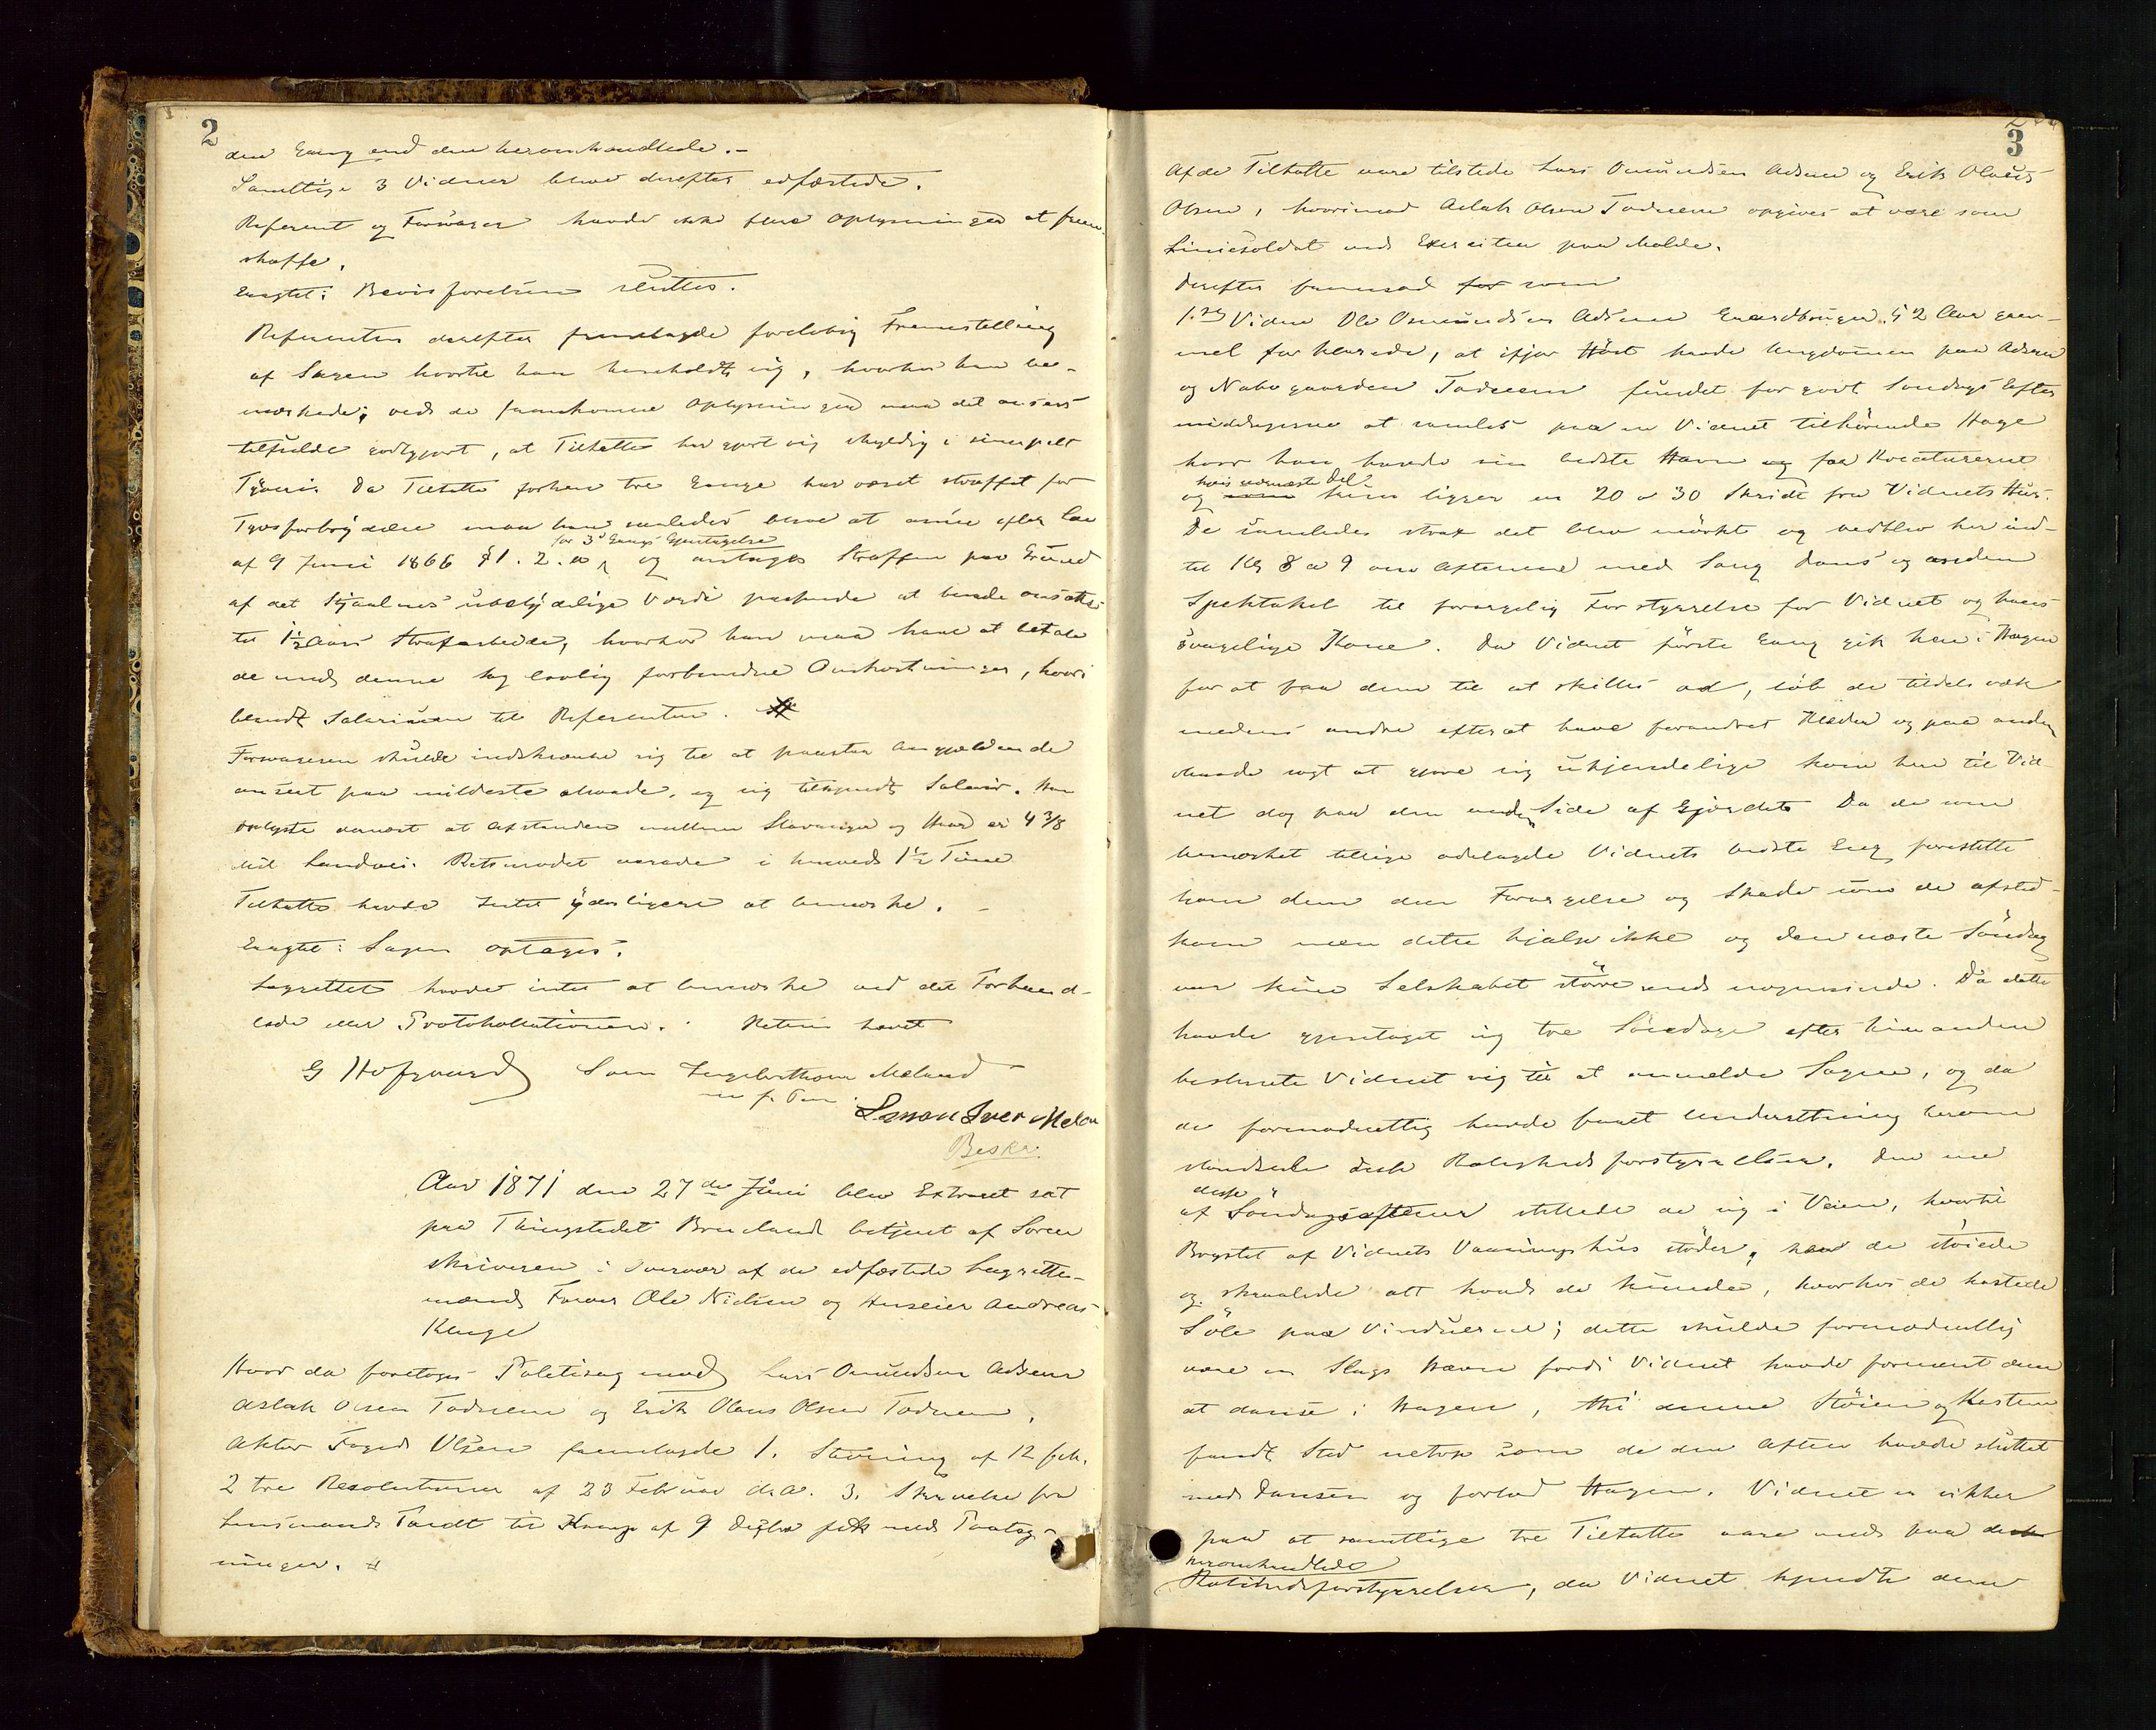 2
den Gang end den heromhandlede. –
Samtlige 3 Vidner bleve derefter edfæstede.
Referent og Forsvarer havde ikke flere Oplysninger at frem-
skaffe.
Eragtet: Bevisførelsen sluttes.
Referenten derefter fremlagde foreløbig Fremstilling
af Sagen hvortil han henholdt sig, hvorhos han be-
mærkede; ved de fremkomne Oplysninger maa det ansees
tilfulde godtgjort, at Tiltalte har gjort sig skyldig i simpelt
Tyveri. Da Tiltalte forhen tre Gange har været straffet for
Tyvsforbrydelse maa han saaledes blive at ansee efter Lov
for 3die Gangs Gjentagelse
af 9 Juni 1866 § 1. 2. a, og antages Straffen paa Grund
af det Stjaalnes ubetydelige Værdi passende at burde ansættes
til 1½ Aars Strafarbeide, hvorhos han maa have at betale
de med denne Sag lovlig forbundne Omkostninger, hvori
Salarium til Referenten.
Forsvareren skulde indskrænke sig til at paastaa Angjældende
anseet paa mildeste Maade, og sig tilkjendt Salair. Han
oplyste dernæst at Afstanden mellem Stavanger og er 4 3/8
Mil Landvei. Retsmødet varede i henved 1½ Time
Tiltalte havde Intet yderligere at bemærke. –
Eragtet: Sagen optages.
Lagrettet havde intet at bemærke ved det Forhand-
lede eller Protokollationen. Retten hævet
G Hofgaard Sven Ingebretsen Meland
m f Pen
Simon Iver Melan
Beska.
Aar 1871 den 27de Juni blev Extraret sat
paa Thingstedet Brueland betjent af Soren
skriveren i Overvær af de edfæstede Lagrettes-
mænd Farver Ole Nielsen og Huseier Andreas
Kluge
Hvor da foretoges Politisag mod Lars Omundsen Adsen
Aslak Olsen Todnem og Erik Olaus Olsen Todnem.
Aktor Foged Olsen fremlagde 1. Stævning af 12 
2 tre Resolutioner af 23 Februar d.A. 3. Skrivelse fra
Lensmand Tandt til af 9 med Paateg-
ninger.
3
Af de Tiltalte vare tilstede Lars Omundsen Adsen og Erik Olaus
Olsen, hvorimod Aslak Olsen Todnem opgives at være som
Liniesoldat ved Exersitsen paa Malde.
Derefter fremstod for som
1ste Vidne Ole Osmundsen Adsen Gaardbruger 52 Aar gam-
mel forklarede, at ifjor Høst havde Ungdommen paa Adsen
og Nabogaarden Todnem fundet for godt Søndags Efter
middagerne at samles paa en Vidnet tilhørende Hage
hvor han havde sin bedste Havn for Kreaturerne
hvis nærmeste Del
og kun ligger en 20 a 30 Skridt fra Vidnets Hus.
De samledes strax det blev mørkt og vedblev her ind-
til Kl 8 a 9 om Aftenene med Sang Dans og anden
Spektakel til forargelig Forstyrrelse for Vidnet og hans
svagelige Kone. Da Vidnet første Gang gik hen i Hagen
for at faa dem til at skilles ad, løb de tildels væk
medens andre efter at have forandret Klæder og paa anden
Maade søgt at gjøre sig ukjendelige kom hen til Vid-
net dog paa den anden Side af Gjærdet. Da de som
bemærket tillige ødelagde Vidnets bedste Eng, forestilte
han dem den Forargelse og Skade som de afsted-
kom men dette hjalp ikke og den næste Søndag
var kun Selskabet større end nogensinde. Da dette
havde gjentaget sig tre Søndage efter hinanden
besluttede Vidnet sig til at anmelde Sagen, og da
de formodentlig havde faaet Underretning herom
standsede disse Roligheds forstyrrelser. Den ene
disse
af Søndagsaftener stillede de sig i Veien, hvortil
Brystet af Vidnets Vaaningshus støder, hvor de støiede
og skraalede alt hvad de kunde, hvorhos de kastede
Søle paa Vinduerne; dette skulde formodentlig
være en Slags Hævn fordi Vidnet havde forment dem
at danse i Hagen, thi denne Støien og Kasten
fandt Sted netop som de den Aften havde sluttet
med Dansen og forlod Hagen. Vidnet er sikker
paa at samtlige tre Tiltalte vare med paa
heromhandlede
Rolighedsforstyrrelser, da Vidnet kjendte dem